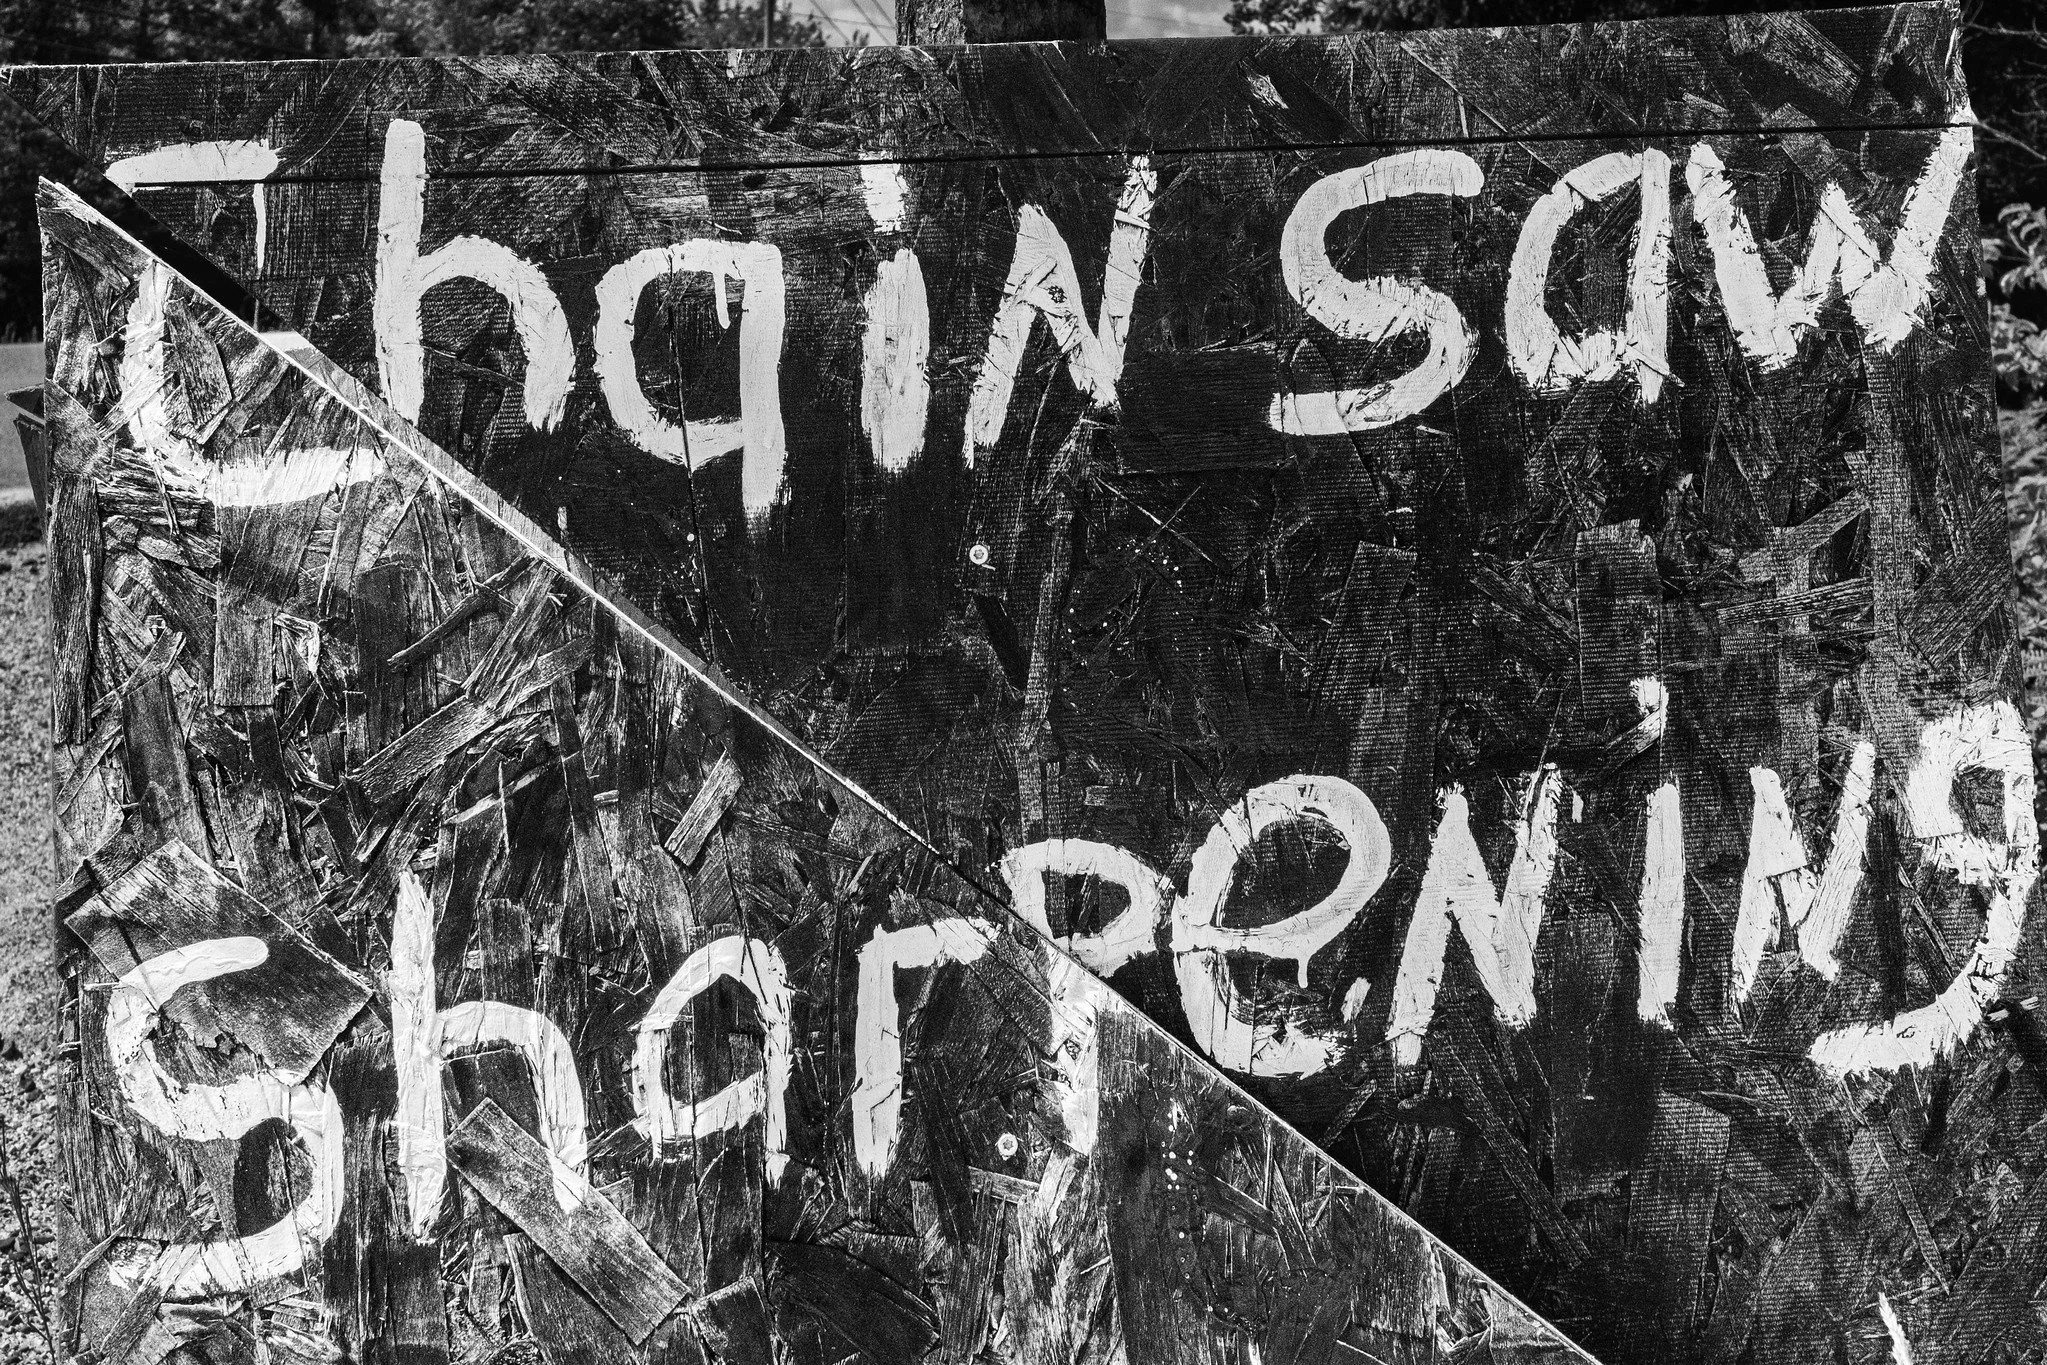 ChaiN Saw
SharPeNiNg